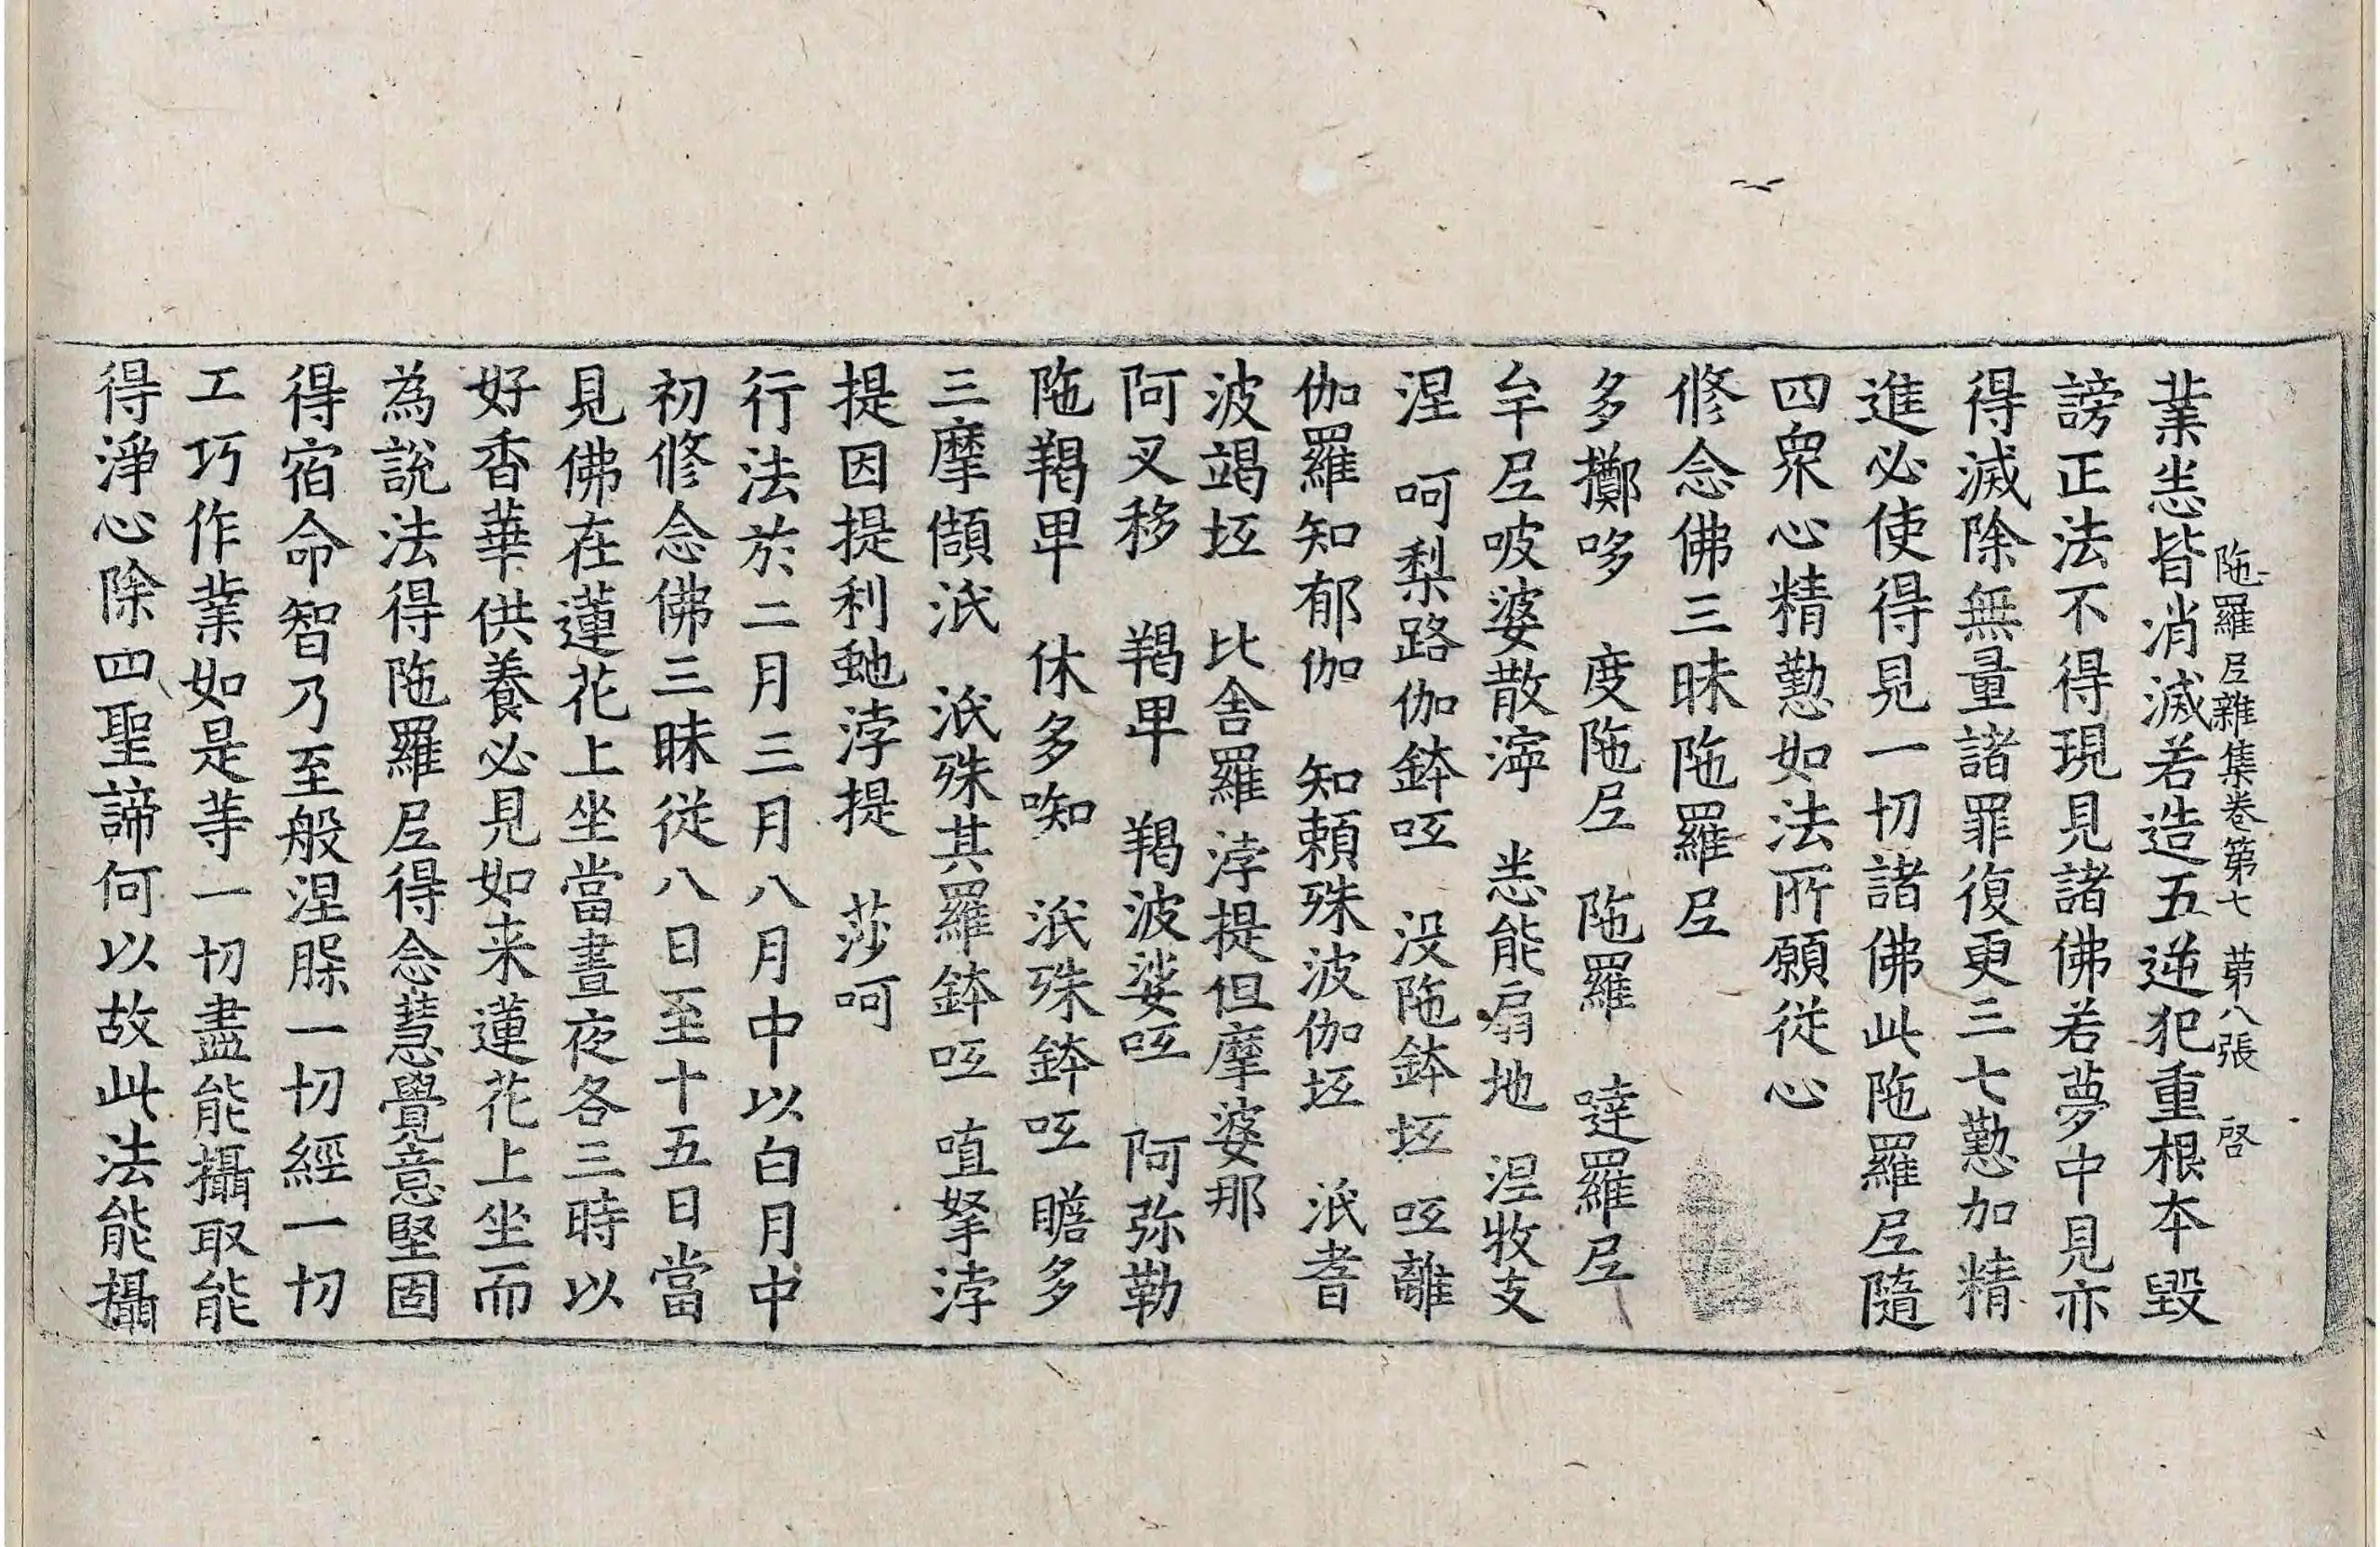 陁羅𡰱雜集卷第七　第八張　啓
業悉皆消滅若造五逆犯重根本毀
謗正法不得現見諸佛若夢中見亦
得滅除無量諸罪復更三七懃加精
進必使得見一切諸佛此陁羅𡰱隨
四衆心精懃如法所願從心
修念佛三昧陁羅𡰱
多擲哆　度陁𡰱　陁羅　噠羅𡰱
牟𡰱吱婆散濘　悉能扇地　涅牧支
涅　呵梨路伽鉢㘁　没陁鉢坘　㘁離
伽羅知郁伽　知頼殊波伽坘　泜耆
波竭坘　比舍羅浡提但摩婆那
阿叉移　羯卑　羯波娑㘁　阿弥勒
陁羯卑　休多㗌　泜殊鉢㘁瞻多
三摩䫂泜　泜殊其羅鉢㘁　㖶拏浡
提因提利虵浡提　莎呵
行法於二月三月八月中以白月中
初修念佛三昧從八日至十五日當
見佛在蓮花上坐當晝夜各三時以
好香華供養必見如来蓮花上坐而
為說法得陁羅𡰱得念慧覺意堅固
得宿命智乃至般涅槃一切經一切
工巧作業如是等一切盡能攝取能
得淨心除四聖諦何以故此法能攝